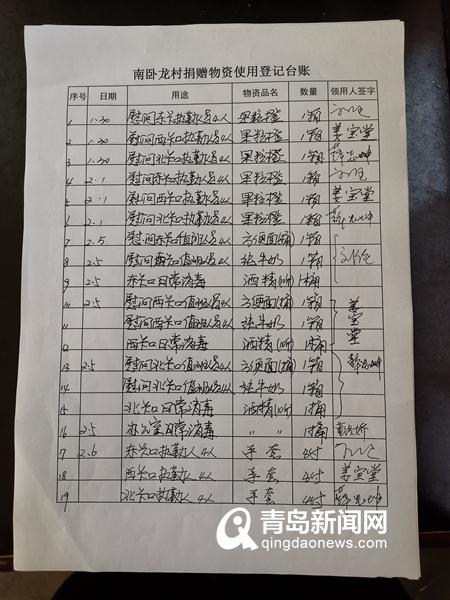 南卧龙村捐赠物资使用登记台账
序号 日期 用途 物资品名 数量 领用人签字
1 1.30 慰问东关口执勤人员4人 果粒橙 1箱
2 1.30 慰问西关口执勤人员4人 果粒橙 1箱 姜宝堂
3 1.30 慰问北关口执勤人员4人 果粒橙 1箱
4 2.1 慰问东关口执勤人员4人 果粒橙 1箱
5 2.1 慰问西关口执勤人员4人 果粒橙 1箱 姜宝堂
6 2.1 慰问北关口执勤人员4人 果粒橙 1箱
7 2.5 慰问东关口值班人员4人 方便面(桶) 1箱
8 2.5 慰问东关口值班人员4人 纯牛奶 1箱
9 2.5 东关口日常消毒 酒精(10斤) 1桶
10 2.5 慰问西关口值班人员4人 方便面(桶) 1箱 姜宝堂
11 慰问西关口值班人员4人 纯牛奶 1箱
12 西关口日常消毒 酒精(10斤) 1桶
13 2.5 慰问北关口值班人员4人 方便面(桶) 1箱
14 慰问北关口值班人员4人 纯牛奶 1箱
15 北关口日常消毒 酒精(10斤) 1桶
16 2.5 办公室日常消毒 〃 〃 1桶
17 2.6 东关口执勤人 4人 手套 4付
18 西关口执勤人 4人 手套 4付 姜宝堂
19 北关口执勤人 4人 手套 4付
青岛新闻网
qingdaonews.com